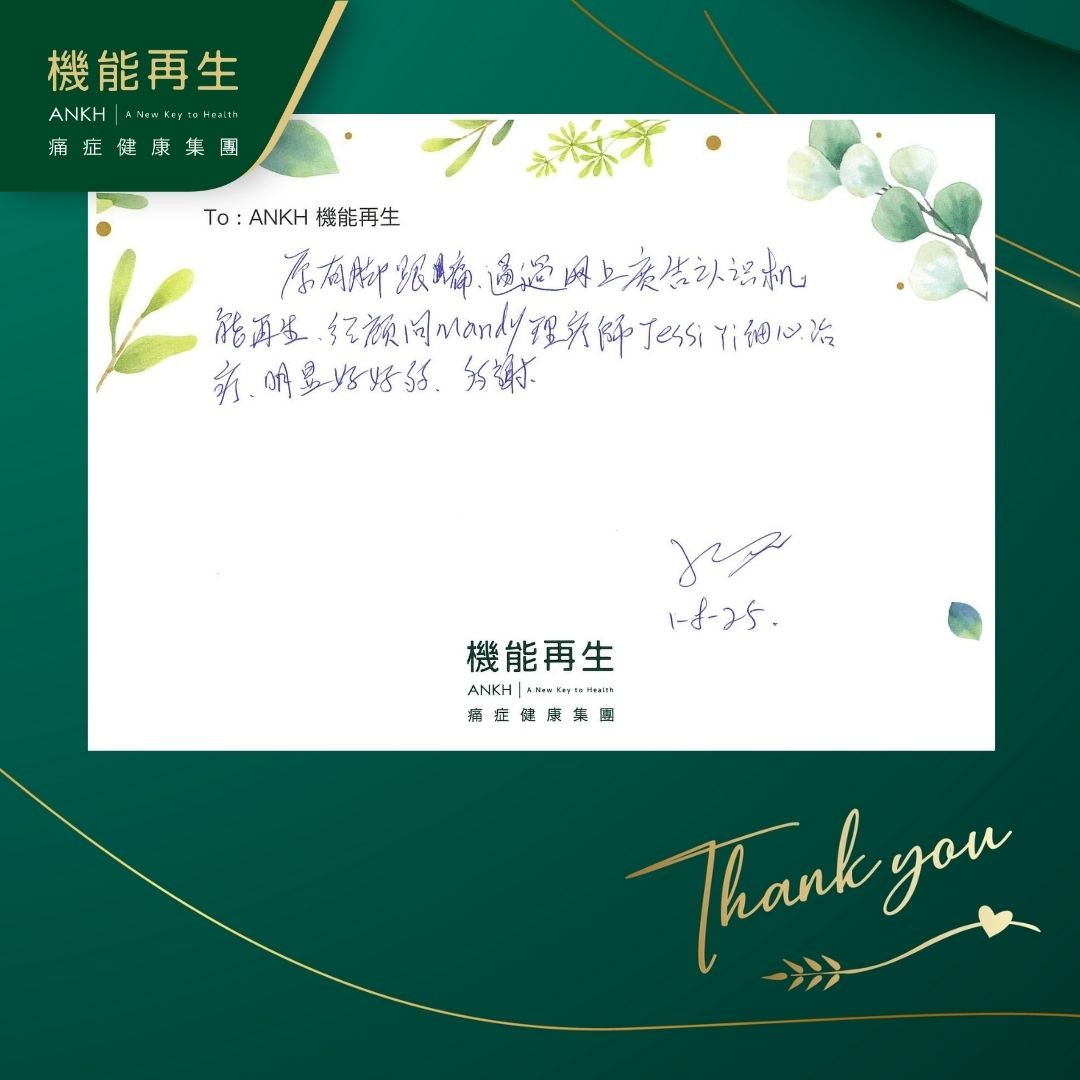 機能再生
ANKH | A New Key to Health
痛症健康集團
To : ANKH 機能再生
原有脚跟痛、通過网上广告认识机
能再生、经顾问Mandy理疗师Jessi Yi细心治
疗、明显好好多、多謝
1-8-25.
機能再生
ANKH | A New Key to Health
痛症健康集團
Thank you